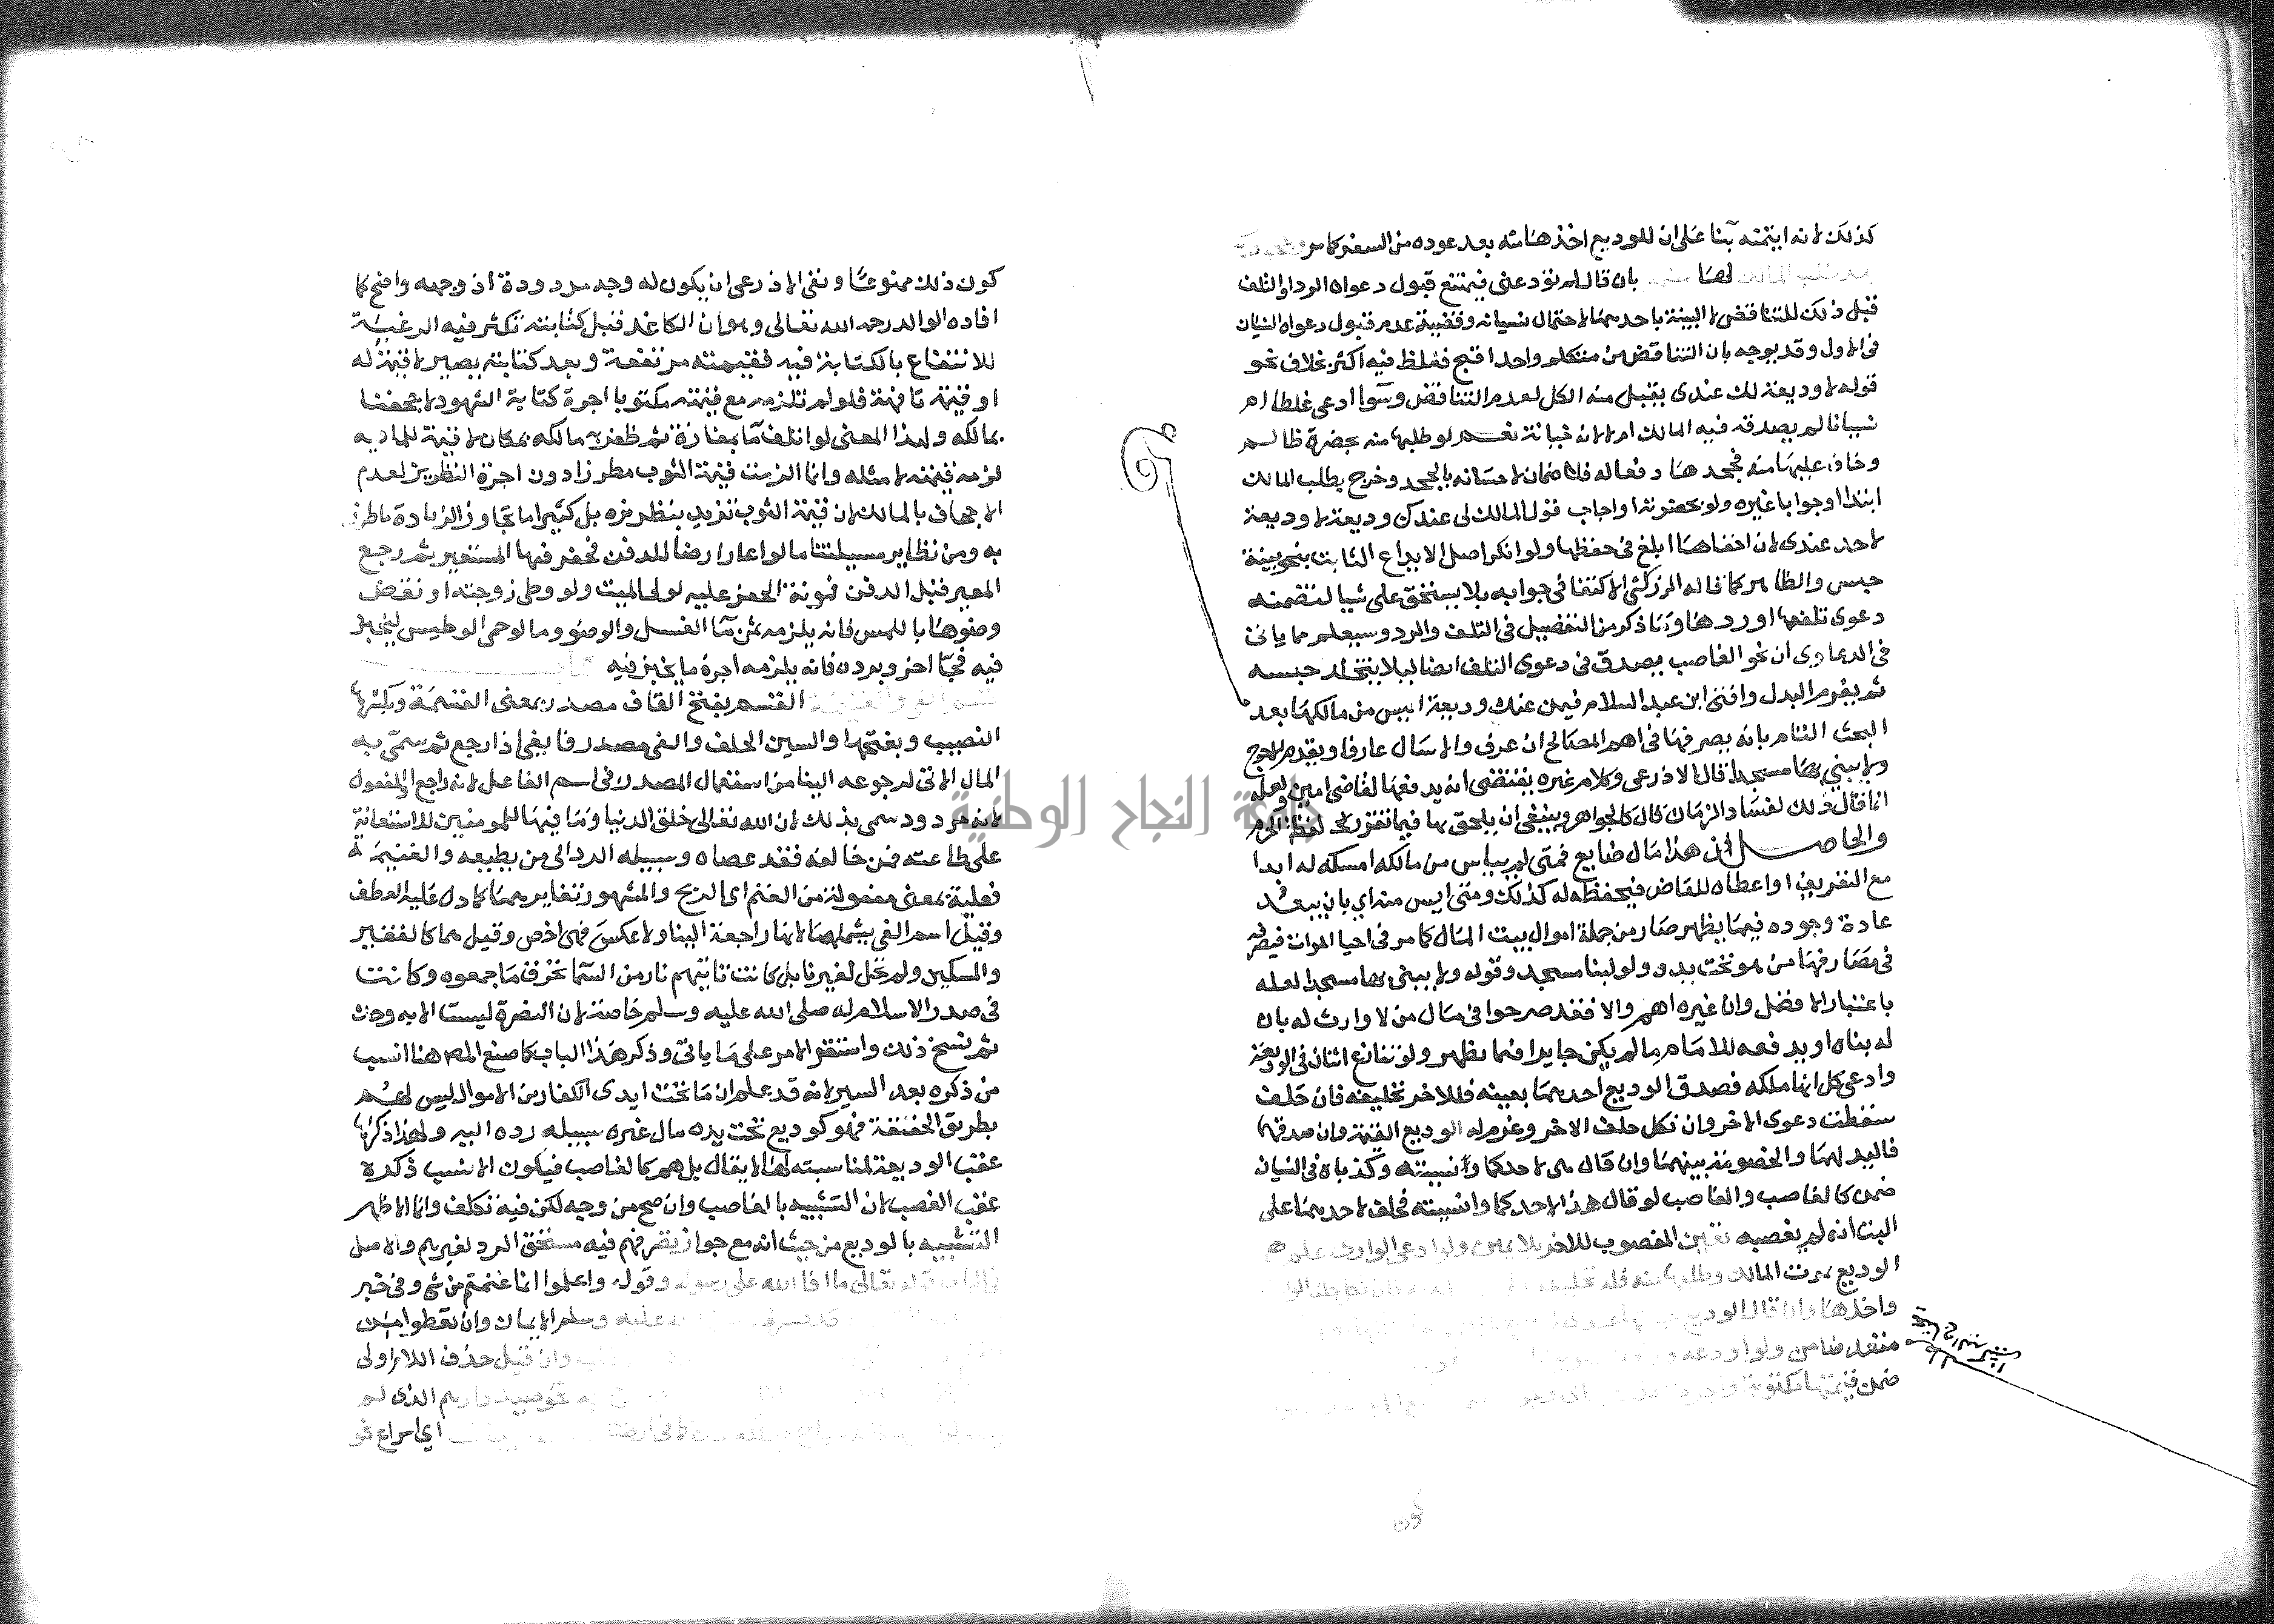 كذلك لانه ايتمنه بنا على ان للوديع اخذها منه بعد عوده من السفر كما مر
لها بان قال لم تودعنى فيمتنع قبول دعواه الرد او التلف
قبل ذلك للتناقض لا البينة باحدهما لاحتمال نسيانه وقضية عدم قبول دعواه النسيان
فى الاول وقد يوجه بان التناقض من متكلم واحد اقبح فغلظ فيه اكثر بخلاف نحو
قوله لا وديعة لك عندى يقبل منه الكل لعدم التناقض وسوا ادعى غلطا ام
نسيانا لم يصدقه فيه المالك ام لا لانه خيانة نعم لو طلبها منه بحضرة ظالم
وخاف عليها منه فجحدها دفعا له فلا ضمان لاحسانه بالجحد وخرج بطلب المالك
ابتدا او جوابا غيره ولو بحضرته او اجاب قول المالك لى عندك وديعة لا وديعة
لاحد عندى لان اخفاها ابلغ فى حفظها ولو انكر اصل الايداع الثابت بنحو بينة
حبس والظاهر كما قاله الزركشى الاكتفا فى جوابه بلا يستحق على شيا لتضمنه
دعوى تلفها او ردها وما ذكر من التفصيل فى التلف والرد وسيعلم مما ياتى
فى الدعاوى ان نحو الغاصب يصدق فى دعوى التلف ايضا ليلا يتخلد حبسه
ثم يغرم البدل وافتى ابن عبد السلام فيمن عنده وديعة ايس من مالكها بعد
البحث التام بانه يصرفها فى اهم المصالح ان عرف والا سال عارفا ويقدم الاحوج
ولا يبنى بها مسجدا قال الاذرعى وكلام غيره يقتضى انه يدفعها لقاضى امين ولعله
انما قال ذلك لفساد الزمان قال كالجواهر وينبغى ان يلحق بها فيما تقرر نحو لقطة الحرم
والحاصل ان هذا مال ضايع فمتى لم ييس من مالكه امسكه له ابدا
مع التعريف او اعطاه للقاض فيحفظه له كذلك ومتى ايس منه اي بان يبعد فى
عادة وجوده فيما يظهر صار من جملة اموال بيت المال كما مر فى احيا الموات فيصرفه
فى مصارفها من هو تحت يده ولو لبنا مسجد وقوله ولا يبنى بها مسجدا لعله
باعتبار الافضل وان غيره اهم والا فقد صرحوا فى مال من لا وارث له بان
له بناه او يدفعه للامام ما لم يكن جايرا فيما يظهر ولو تنازع اثنان فى الوديعة
وادعى كل انها ملكه فصدق الوديع احدهما بعينه فللاخر تحليفه فان حلف
سقطت دعوى الاخر وان نكل حلف الاخر وغرم له الوديع القيمة وان صدقهما
فاليد لهما والخصومة بينهما وان قال هى لاحدكما وانسيته وكذباه فى النسيان
ضمن كالغاصب والغاصب لو قال هذا لاحدكما وانسيته فحلف لاحدهما على
البت انه لم يغصبه تعين المغصوب للاخر بلا يمين ولو ادعى الوارث علم
الوديع بموت المالك وطلبها منه فله تحليفه
واخذها وان قال الوديع
منقل ضامن ولو اودعه
ضمن قيمتها مكتوبة
كون ذلك ممنوعا ونفى الاذرعى ان يكون له وجه مردودة اذ وجهه واضح كما
افاده الوالد رحمه الله تعالى وهو ان الكاغد قبل كتابته تكثر فيه الرغبة
للانتفاع بالكتابة فيه فقيمته مرتفعة وبعد كتابته يصير لا قيمة له
او قيمته تافهة فلو لم تلزمه مع قيمته مكتوبا اجرة كتابة الشهود لاجحفنا
بمالكه ولهذا المعنى لو اتلف ما بمفازة ثم ظفر به مالكه بمكان لا قيمة للما فيه
لزمه قيمته لا مثله وانما الزمت قيمة الثوب مطرزا دون اجرة التطريز لعدم
الاجحاف بالمالك لان قيمة الثوب تزيد بتطريزه بل كثيرا ما تجاوز الزيادة ما طرز
به ومن نظاير مسيلتنا ما لو اعار ارضا للدفن فحفر فيها المستعير ثم رجع
المعير قبل الدفن فمونة الحفر عليه لولى الميت ولو وطى زوجته او نقض
وضوها باللمس فانه يلزمه ثمن ما الغسل والوضو وما لو حمى الوطيس ليخبز
فيه فجا اخر وبرده فانه يلزمه اجرة ما يخبز فيه
قسم الفى والغنيمة القسم بفتح القاف مصدر بمعنى القسمة وبكسرها
النصيب وبفتحها والسين الحلف والفى مصدر فا يفى اذا رجع ثم سمى به
المال الاتى لرجوعه الينا من استعمال المصدر فى اسم الفاعل لانه راجع او المفعول
لانه مردود سمى بذلك لان الله تعالى خلق الدنيا وما فيها للمومنين للاستعانة
على طاعته فمن خالفه فقد عصاه وسبيله الرد الى من يطيعه والغنيمة
فعلية بمعنى مفعولة من الغنم اى الربح والمشهور تغايرهما كما دل عليه العطف
وقيل اسم الفى يشملهما لانها راجعة الينا ولا عكس فهى اخص وقيل هما كالفقير
والمسكين ولم تحل لغيرنا بل كانت تاتيهم نار من السما تحرق ما جمعوه وكانت
فى صدر الاسلام له صلى الله عليه وسلم خاصة لان النصرة ليست الا به وحده
ثم نسخ ذلك واستقر الامر على ما ياتى وذكر هذا الباب كما صنع المص هنا انسب
من ذكره بعد السير لانه قد علم ان ما تحت ايدى الكفار من الاموال ليس لهم
بطريق الحقيقة فهو كوديع تحت يده مال غيره سبيله رده اليه ولهذا ذكرها
عقب الوديعة لمناسبته لها لا يقال بل هم كالغاصب فيكون الانسب ذكره
عقب الغصب لان التشبيه بالغاصب وان صح من وجه لكن فيه تكلف وانما الاظهر
التشبيه بالوديع من حيث انه مع جواز تصرفهم فيه مستحق الرد لغيرهم والاصل
فى الباب قوله تعالى ما افا الله على رسوله وقوله واعلموا انما غنمتم من شى وفى خبر
عليه وسلم الايمان وان تعطوا من
وان قيل حذف اللام اولى
الذى لم
اي اسراع
جامعة النجاح الوطنية